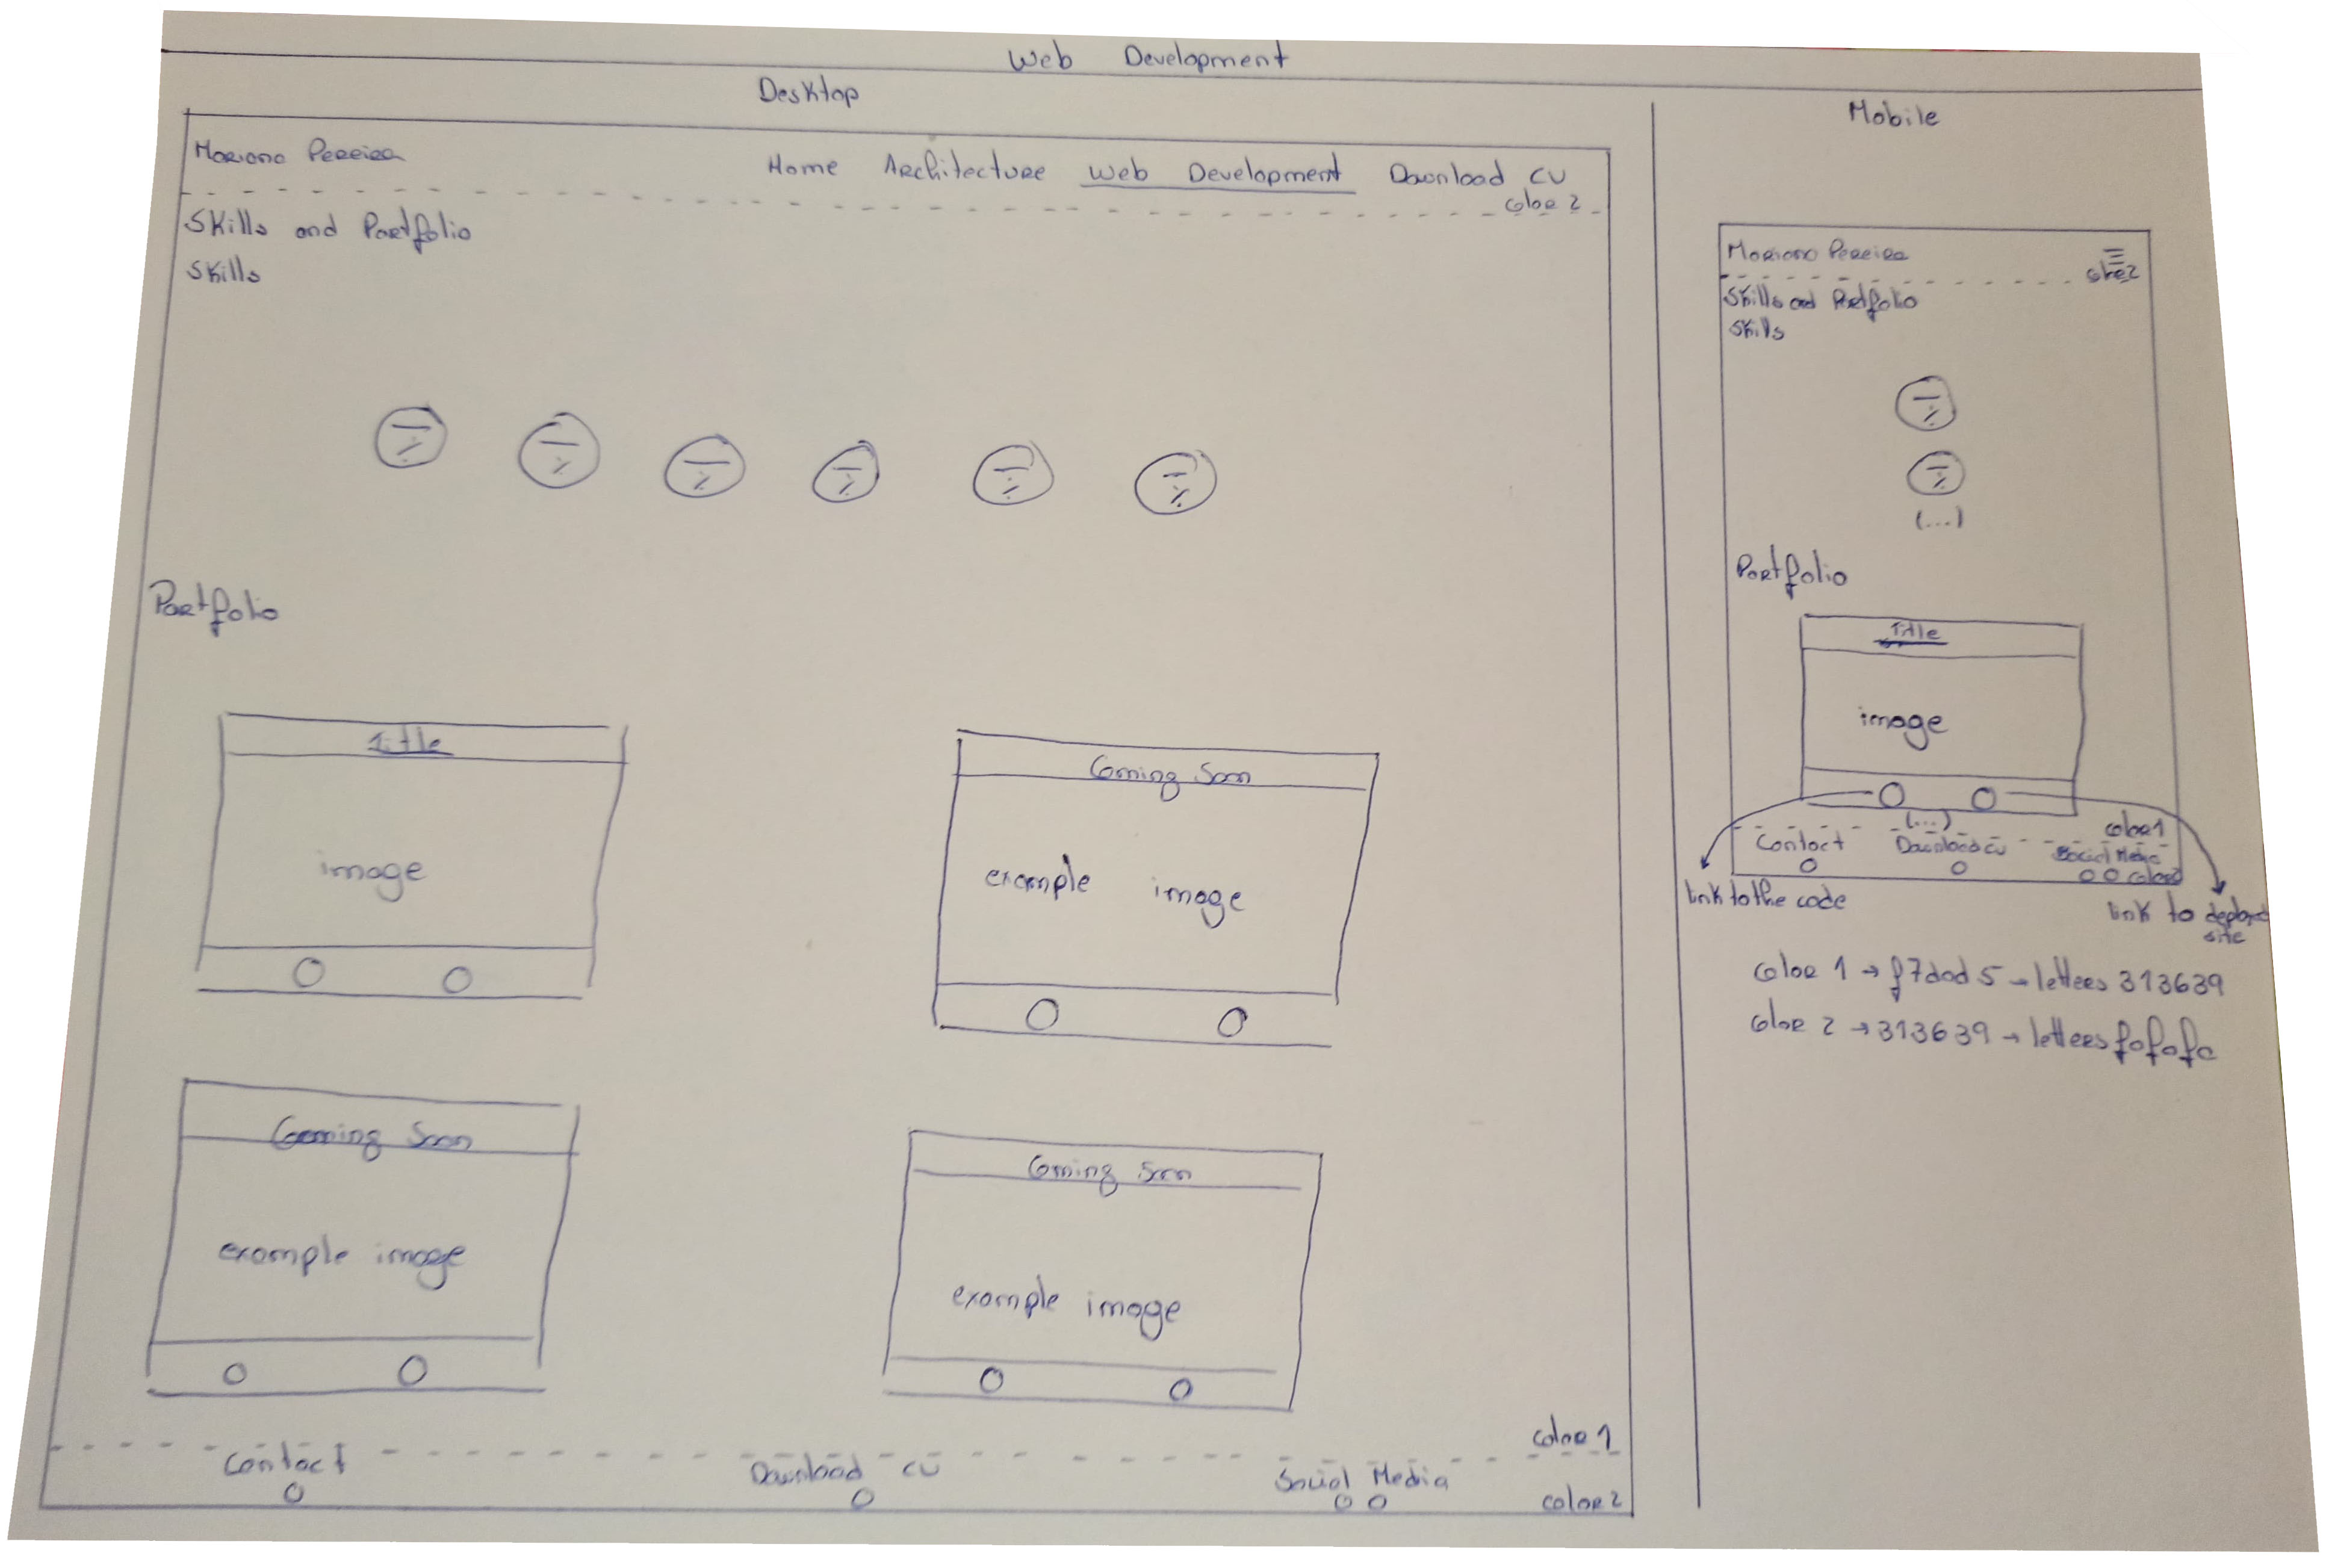 Web Development
Desktop
Mariana Pereira
Home Architecture Web Development Download CV
color 2
Skills and Portfolio
Skills
%
%
%
%
%
%
Portfolio
Title
image
Coming Soon
example image
Coming Soon
example image
Coming Soon
example image
color 1
Contact
Download CV
Social Media
color 2
Mobile
Mariana Pereira
color 2
Skills and Portfolio
Skills
%
%
(...)
Portfolio
Title
image
(...)
color 1
Contact
Download CV
Social Media
color 2
link to the code
link to deployed site
color 1 → f7dad5 → letters 313639
color 2 → 313639 → letters fafafa